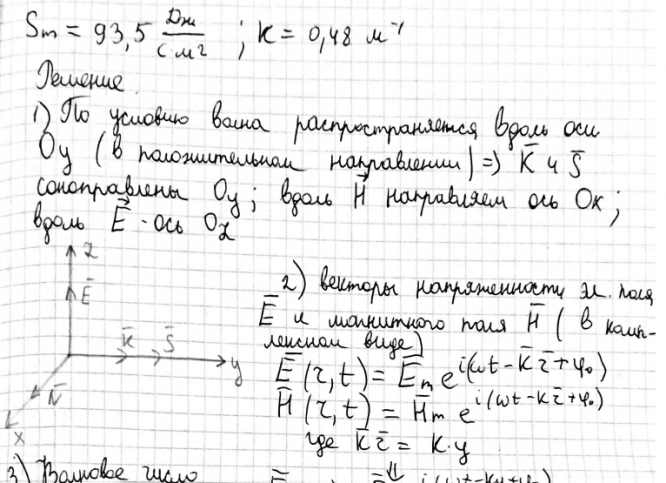 Sm = 93,5 Дж/(с·м²) ; K = 0,48 м⁻¹
Решение
1) По условию волна распространяется вдоль оси
Oy (в положительном направлении) => K̄ и S̄
сонаправлены Oy; вдоль H⃗ направляем ось Ox;
вдоль E⃗ - ось Oz
z
Ē
K̄ S̄
y
H̄
x
2) векторы напряженности эл. поля
Ē и магнитного поля H̄ (в комп-
лексном виде)
Ē(r,t) = Ēm e^i(ωt - K̄r̄ + φ₀)
H̄(r,t) = H̄m e^i(ωt - K̄r̄ + φ₀)
где K̄r̄ = K·y
3) Волновое число